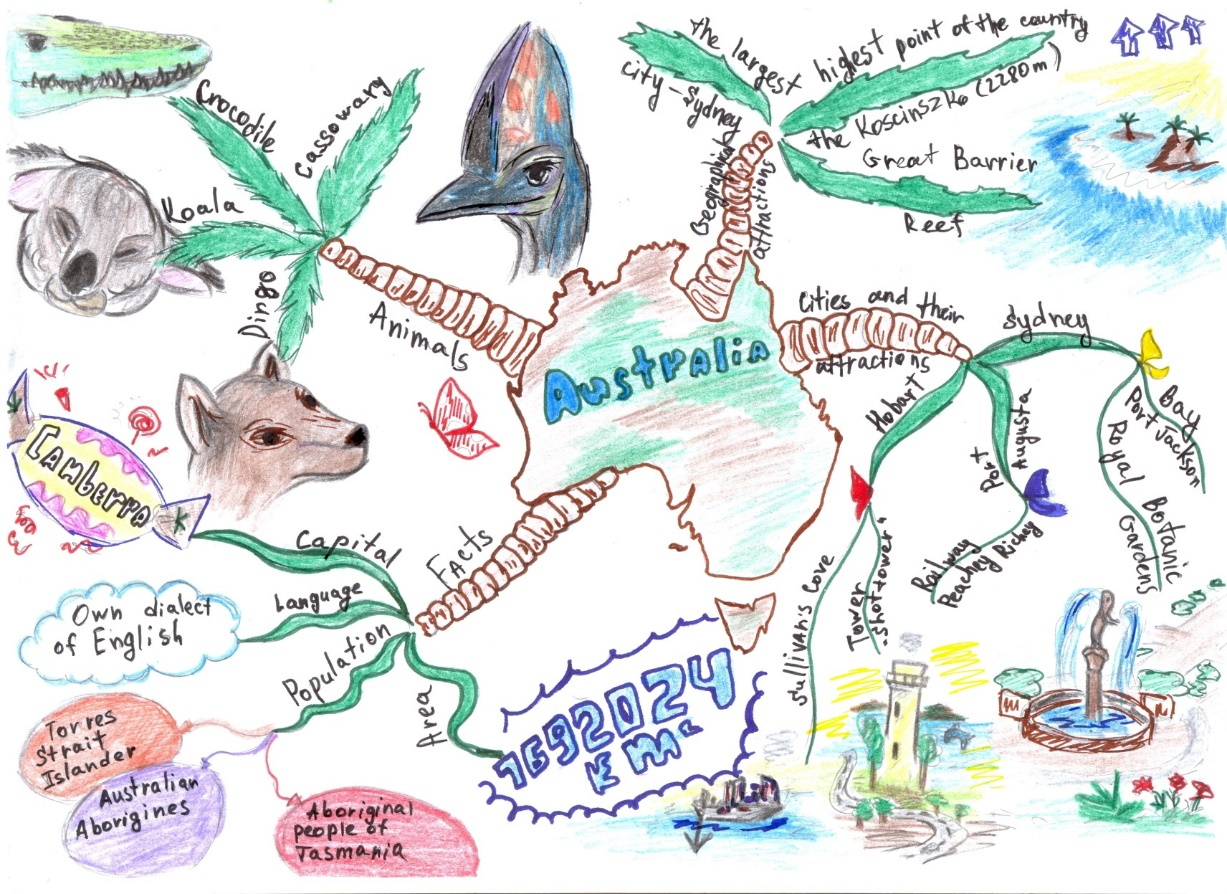 Australia
Animals
Crocodile
Cassowary
Koala
Dingo
Geographical
attractions
the largest
city - Sydney
highest point of the country
the Koscinszko (2280m)
Great Barrier
Reef
Cities and their
attractions
Sydney
Bay
Port Jackson
Royal Botanic
Gardens
Port
Augusta
Railway
Peachney Richey
Hobart
Sullivan's Cove
Tower
"Shot tower"
Facts
Capital
Camberra
K
Language
Own dialect
of English
Population
Torres
Strait
Islander
Australian
Aborigines
Aboriginal
people of
Tasmania
Area
7692024
km²